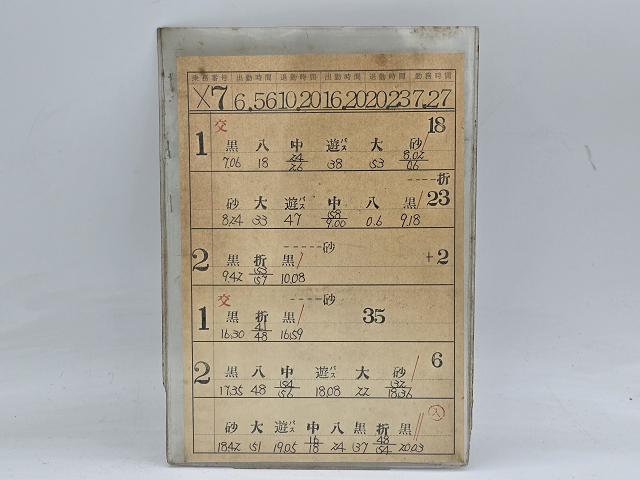 乗務番号 出勤時間 退勤時間 出勤時間 退勤時間 勤務時間
X7 6.56 10.20 16.20 20.23 7.27
交 18
1 黒 八 中 遊バス 大 砂
7.06 18 24/26 38 53 8.02/06
----折
砂 大 遊バス 中 八 黒 23
8.24 33 47 58/9.00 0.6 9.18
-----砂
2 黒 折 黒 +2
9.42 53/57 10.08
交 ----砂
1 黒 折 黒 35
16.30 41/48 16.59
6
2 黒 八 中 遊バス 大 砂
17.35 48 54/56 18.08 22 32/18.36
入
砂 大 遊バス 中 八 黒 折 黒
18.42 51 19.05 16/18 24 37 48/54 20.03